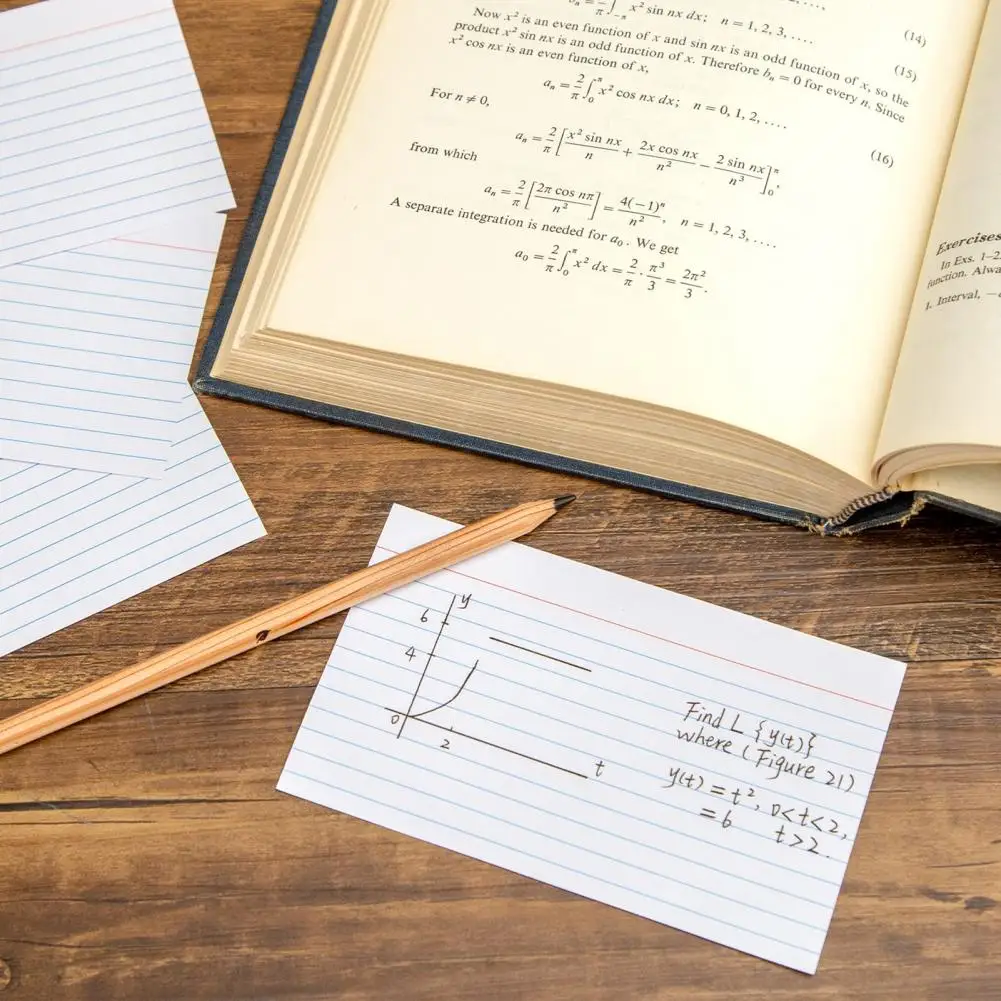 bₙ = 1/π ∫_{-π}^{π} x² sin nx dx; n = 1, 2, 3, ....
(14)
Now x² is an even function of x and sin nx is an odd function of x, so the
product x² sin nx is an odd function of x. Therefore bₙ = 0 for every n. Since
x² cos nx is an even function of x,
(15)
aₙ = 2/π ∫₀^π x² cos nx dx; n = 0, 1, 2, ....
For n ≠ 0,
aₙ = 2/π [x² sin nx/n + 2x cos nx/n² − 2 sin nx/n³]₀^π,
(16)
from which
aₙ = 2/π [2π cos nπ/n²] = 4(−1)ⁿ/n², n = 1, 2, 3, ....
A separate integration is needed for a₀. We get
a₀ = 2/π ∫₀^π x² dx = 2/π · π³/3 = 2π²/3.
Exercises
In Exs. 1–2
function. Alwa
1. Interval, −
y
6
4
0
2
t
Find L {y(t)}
where (Figure 21)
y(t) = t², 0<t<2,
= 6 t>2.